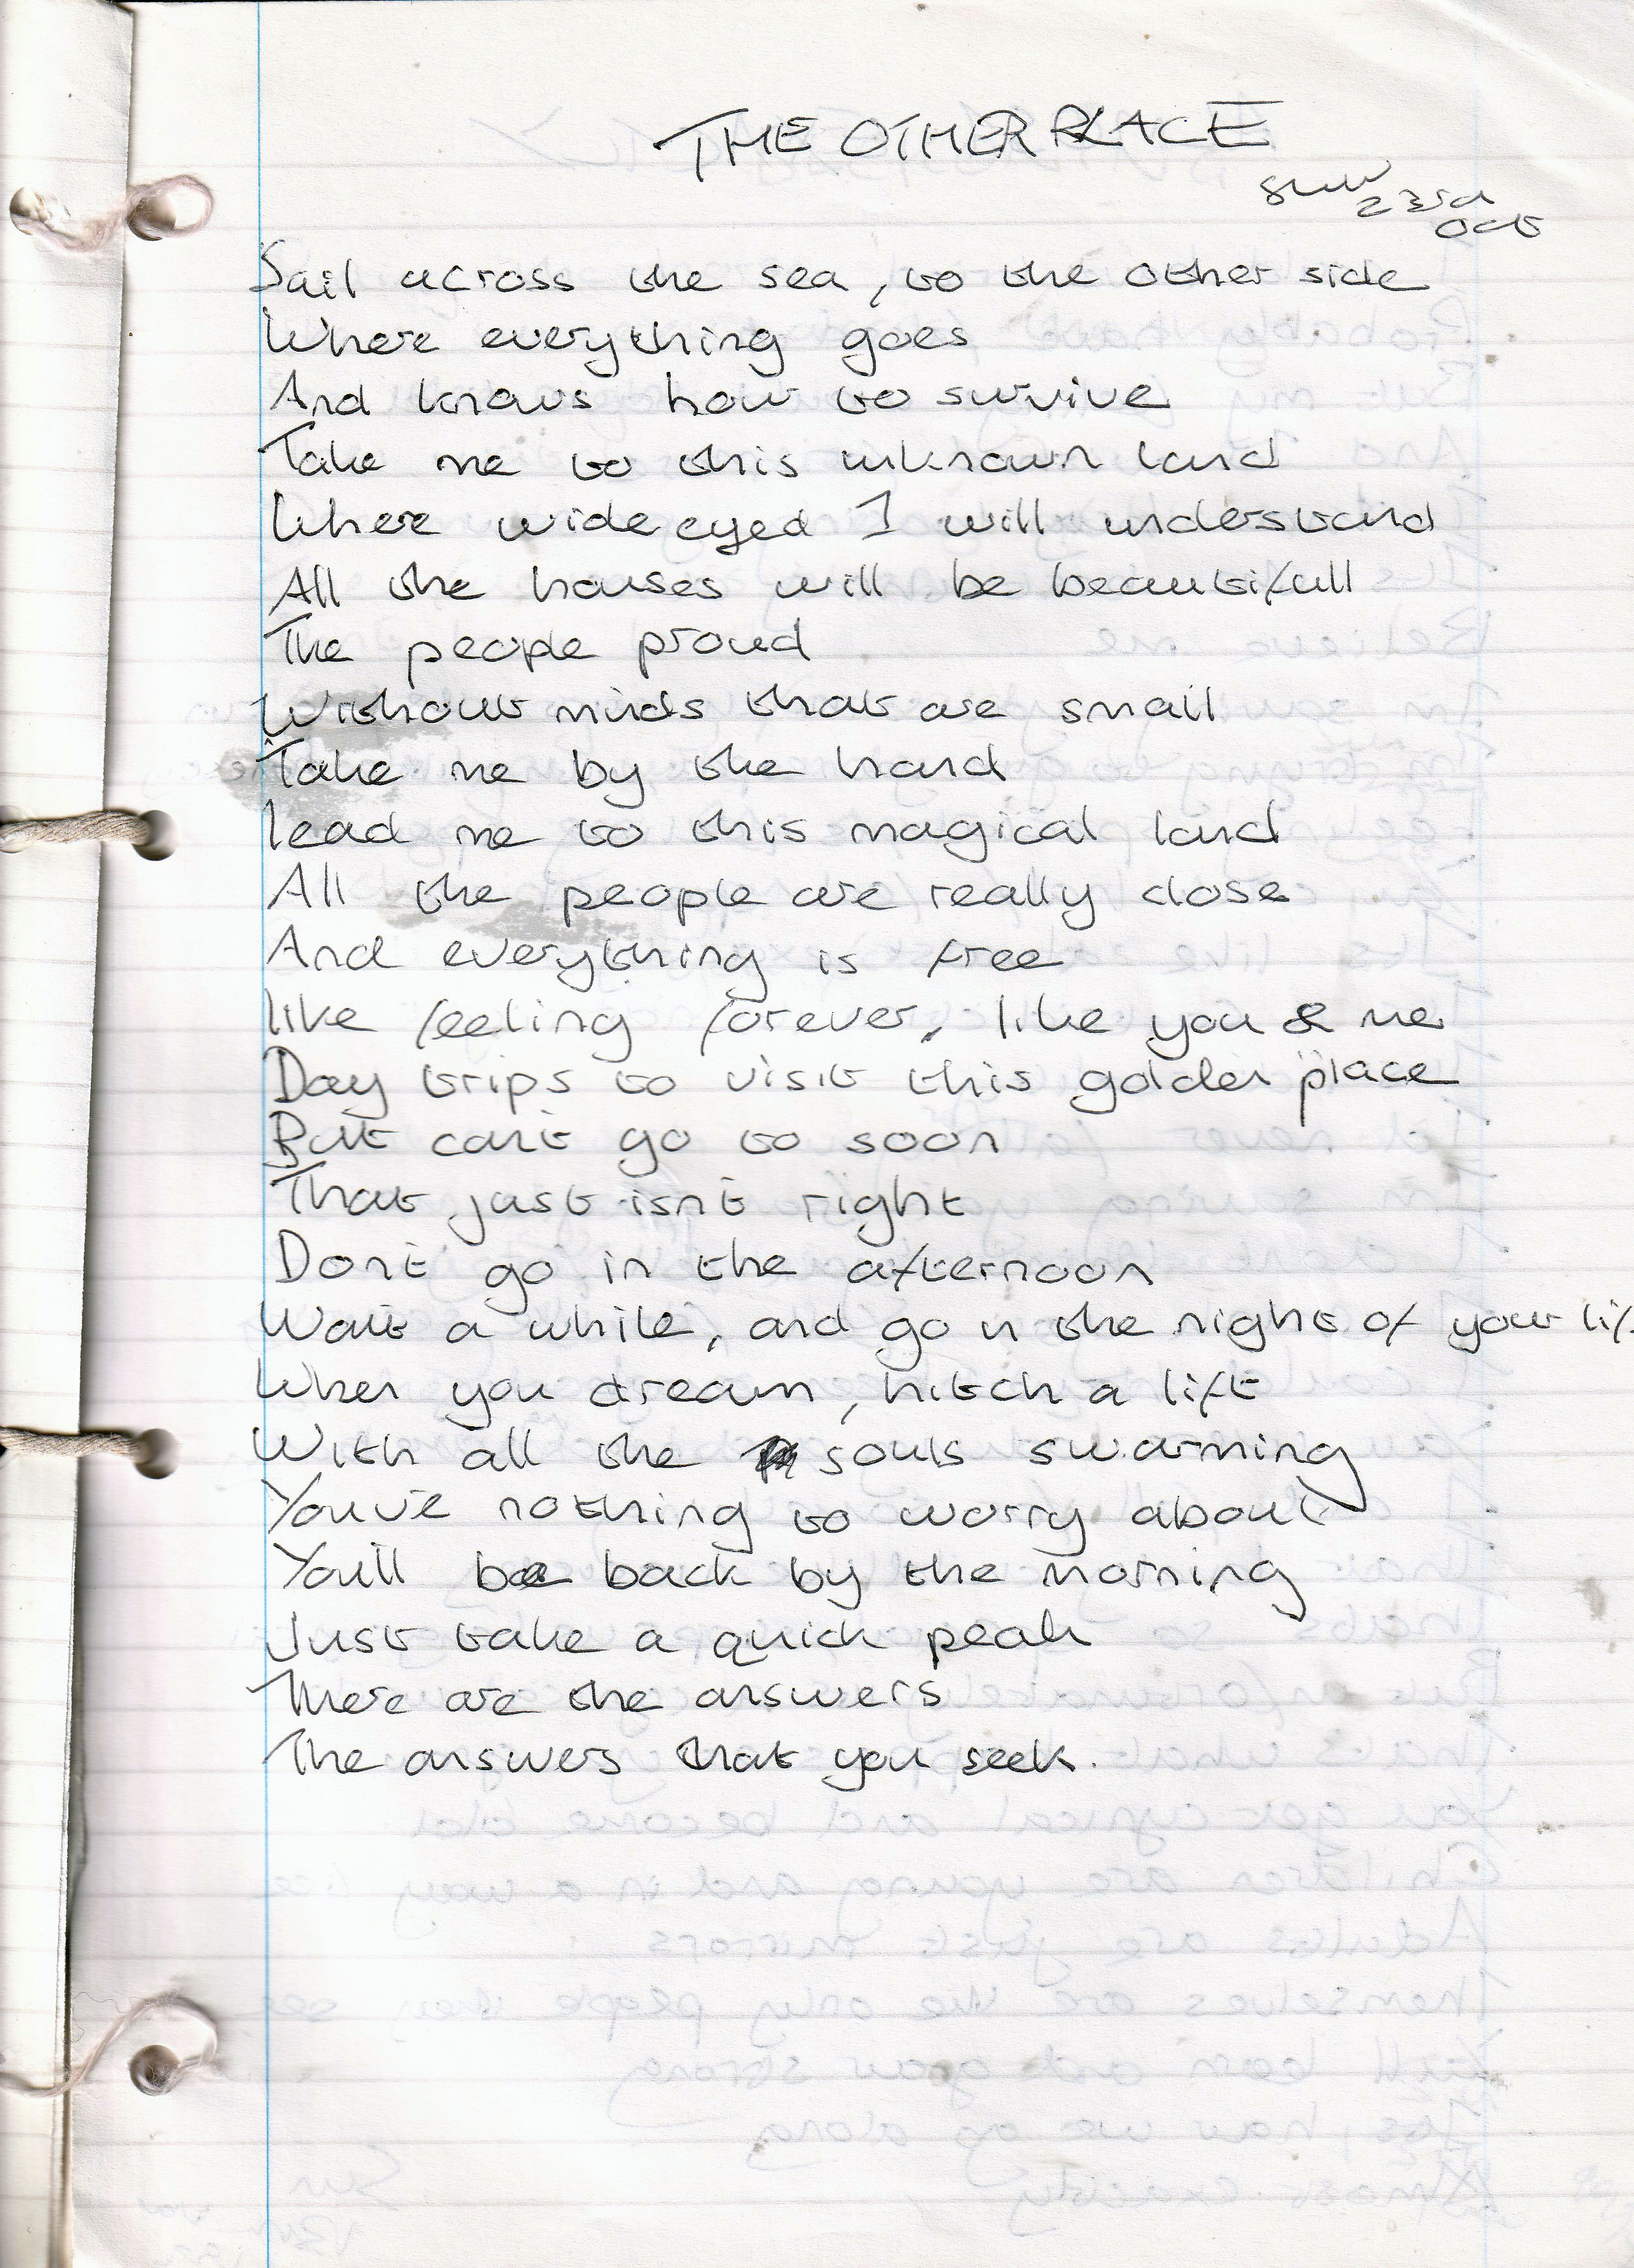 THE OTHER PLACE
Sun
23rd
Oct
Sail across the sea, to the other side
Where everything goes
And knows how to survive
Take me to this unknown land
Where wide eyed I will understand
All the houses will be beautifull
The people proud
Without minds that are small
Take me by the hand
lead me to this magical land
All the people are really close
And everything is free
like feeling forever, like you & me
Day trips to visit this golden place
But can't go to soon
That just isn't right
Don't go in the afternoon
Wait a while, and go in the night of your
When you dream, hitch a lift
With all the souls swarming
You've nothing to worry about
You'll be back by the morning
Just take a quick peak
There are the answers
The answers that you seek.